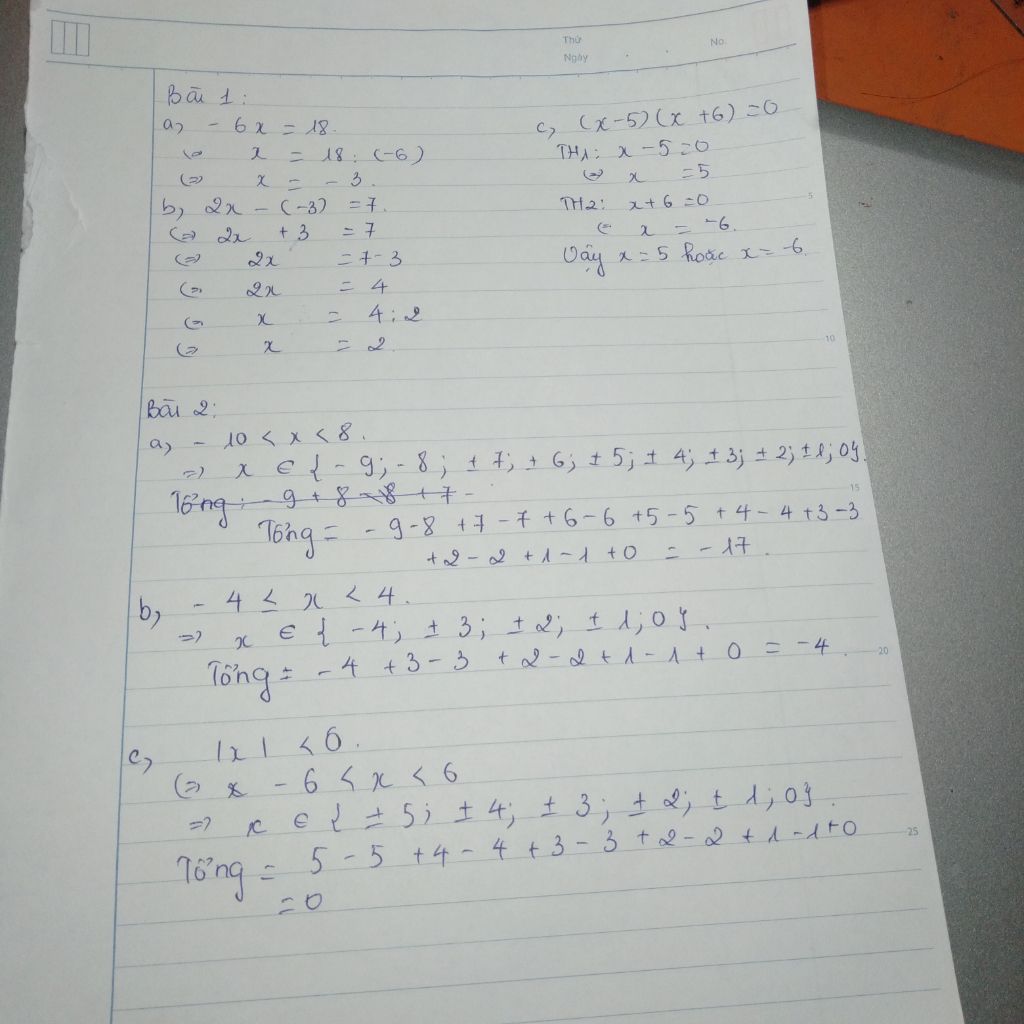 Thứ
Ngày
No.
Bài 1:
a, - 6x = 18.
⇔ x = 18 : (-6)
⇔ x = - 3.
b, 2x - (-3) = 7.
⇔ 2x + 3 = 7
⇔ 2x = 7-3
⇔ 2x = 4
⇔ x = 4:2
⇔ x = 2.
c, (x-5)(x+6) =0
TH1: x - 5 =0
⇔ x =5
TH2: x+6 =0
⇔ x = -6.
Vậy x = 5 hoặc x = -6.
5
10
Bài 2:
a, - 10 < x < 8.
=> x ∈ { - 9; - 8; ± 7; ± 6; ± 5; ± 4; ± 3; ± 2; ± 1; 0}.
15
Tổng = - 9 - 8 + 7 - 7 + 6 - 6 + 5 - 5 + 4 - 4 + 3 - 3
+ 2 - 2 + 1 - 1 + 0 = - 17.
b, - 4 ≤ x < 4.
=> x ∈ { - 4; ± 3; ± 2; ± 1; 0}.
Tổng = - 4 + 3 - 3 + 2 - 2 + 1 - 1 + 0 = - 4.
20
c, |x| < 6.
⇔ - 6 < x < 6
=> x ∈ { ± 5; ± 4; ± 3; ± 2; ± 1; 0}.
Tổng = 5 - 5 + 4 - 4 + 3 - 3 + 2 - 2 + 1 - 1 + 0
25
= 0